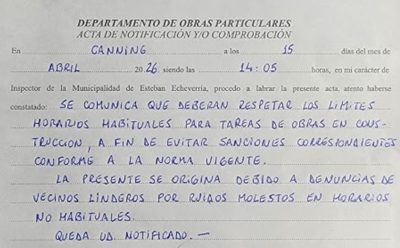 DEPARTAMENTO DE OBRAS PARTICULARES
ACTA DE NOTIFICACIÓN Y/O COMPROBACIÓN
En CANNING a los 15 días del mes de
ABRIL 2026 siendo las 14:05 horas, en mi carácter de
Inspector de la Municipalidad de Esteban Echeverría, procedo a labrar la presente acta, atento haberse
constatado: SE COMUNICA QUE DEBERAN RESPETAR LOS LIMITES
HORARIOS HABITUALES PARA TAREAS DE OBRAS EN CONS-
TRUCCION, A FIN DE EVITAR SANCIONES CORRESPONDIENTES
CONFORME A LA NORMA VIGENTE.
LA PRESENTE SE ORIGINA DEBIDO A DENUNCIAS DE
VECINOS LINDEROS POR RUIDOS MOLESTOS EN HORARIOS
NO HABITUALES.
QUEDA UD. NOTIFICADO.—